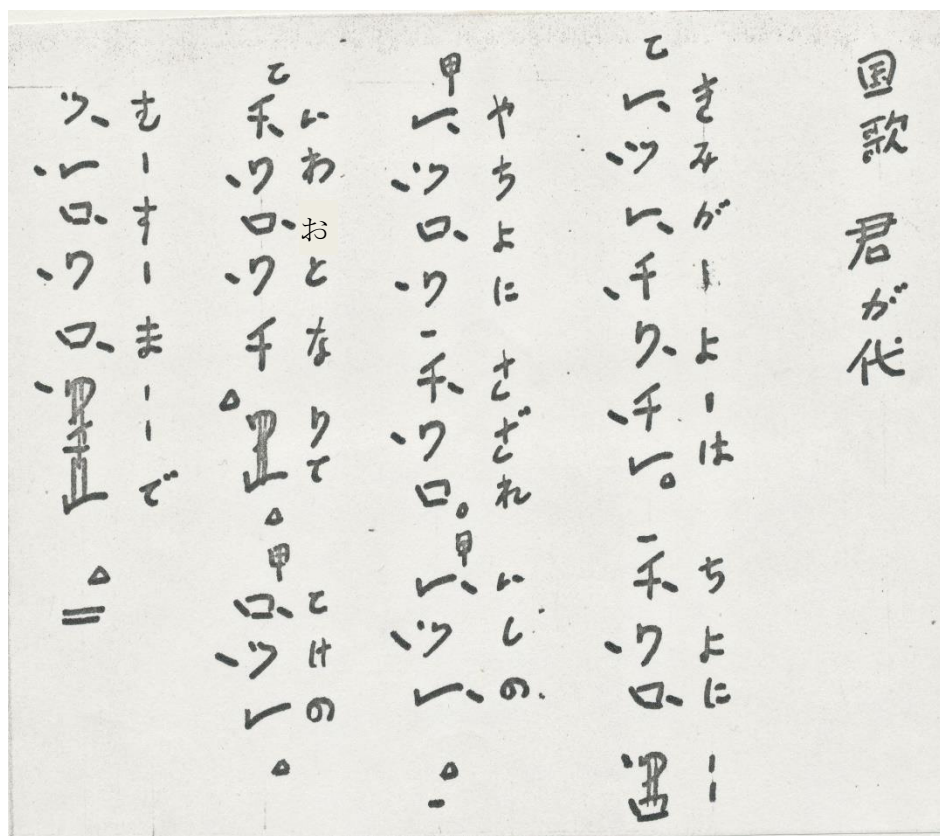 国歌 君が代
きみがーよーは ちよにーー
乙 レツレチワチレ。 チワロ
やちよに さざれ いしの
甲 レツロワ チワロ。 甲 レツレ △
いわおとなりて こけの
乙 チワロワチ △ 甲 ロツレ △
むーすーまーーで
ツレロワロ △